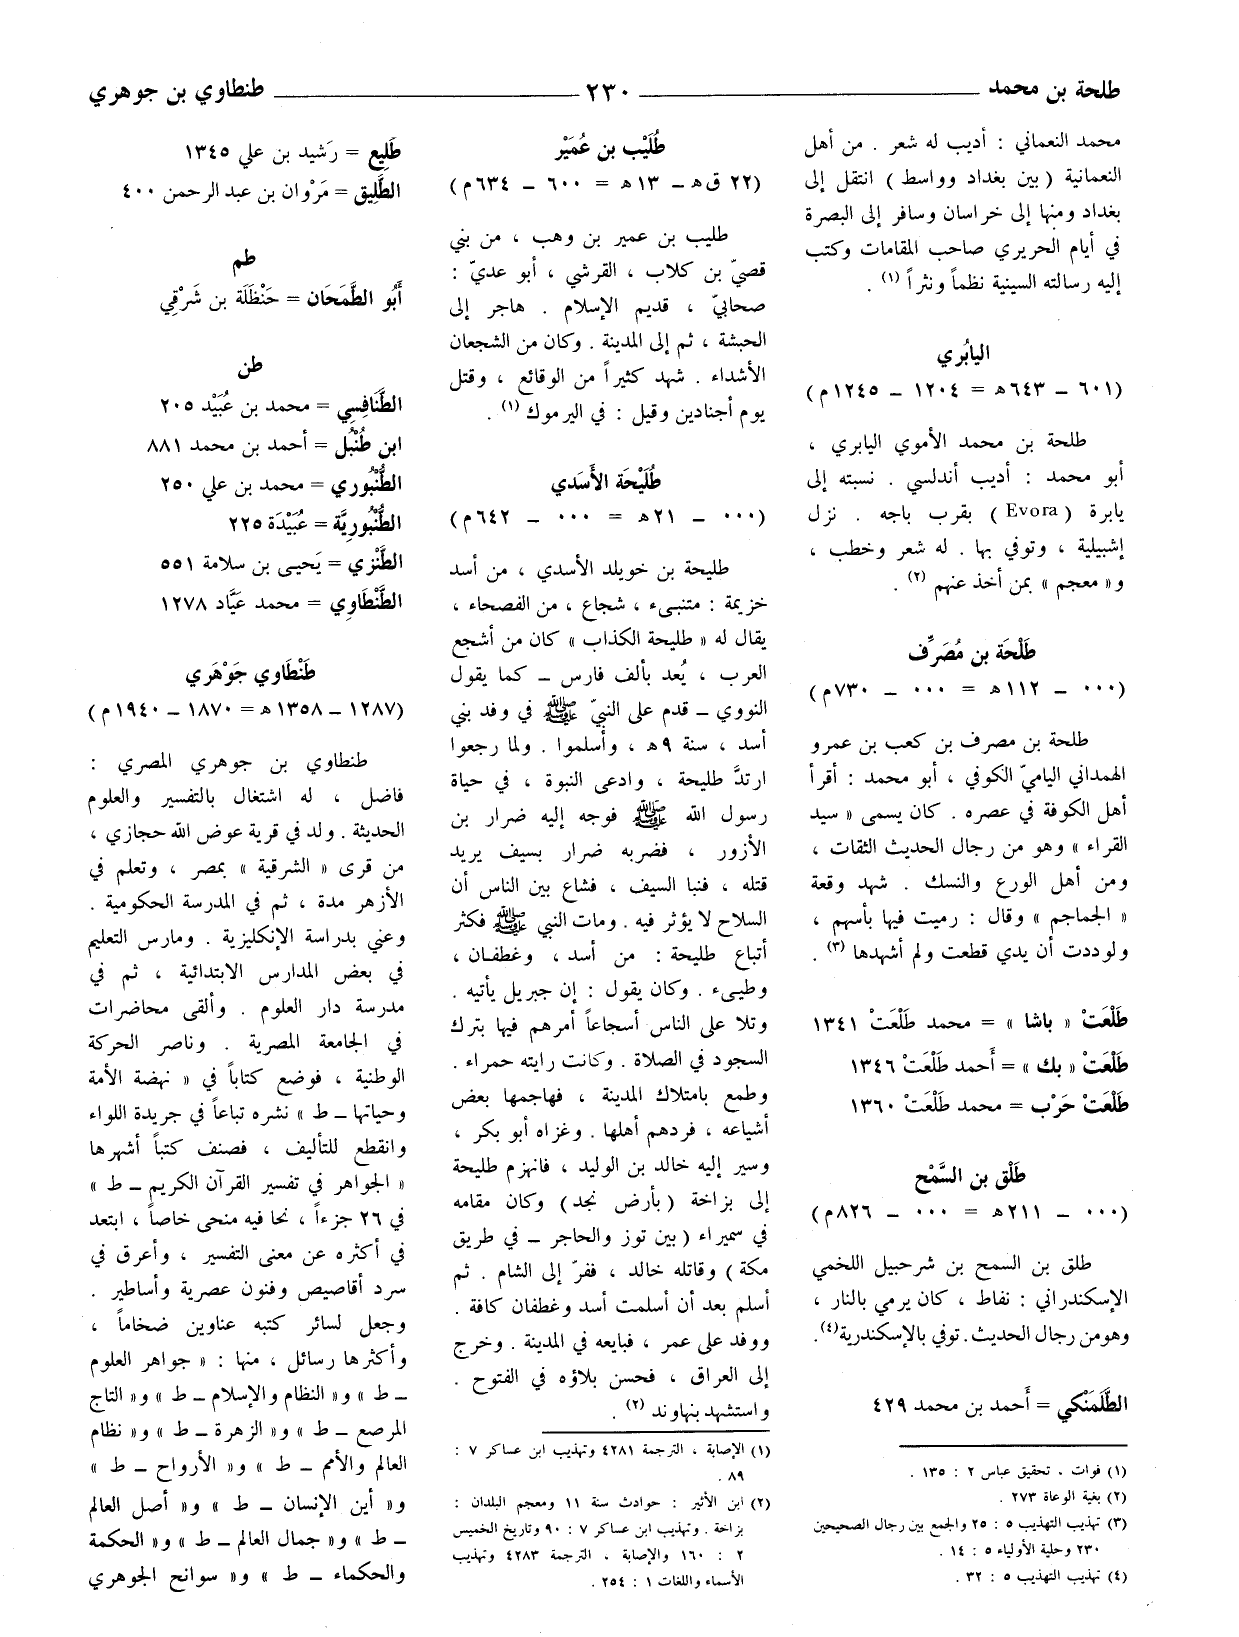 طلحة بن محمد ــــــ ٢٣٠ ــــــ طنطاوي بن جوهري
محمد النعماني : أديب له شعر . من أهل
النعمانية ( بين بغداد وواسط ) انتقل إلى
بغداد ومنها إلى خراسان وسافر إلى البصرة
في أيام الحريري صاحب المقامات وكتب
إليه رسالته السينية نظماً ونثراً (١) .
اليابُري
(٦٠١ – ٦٤٣ه = ١٢٠٤ – ١٢٤٥م)
طلحة بن محمد الأموي اليابري ،
أبو محمد : أديب أندلسي . نسبته إلى
يابرة (Evora) بقرب باجه . نزل
إشبيلية ، وتوفي بها . له شعر وخطب ،
و« معجم » بمن أخذ عنهم (٢) .
طَلْحَة بن مُصَرِّف
(٠٠٠ – ١١٢ه = ٠٠٠ – ٧٣٠م)
طلحة بن مصرف بن كعب بن عمرو
الهمداني الياميّ الكوفي ، أبو محمد : أقرأ
أهل الكوفة في عصره . كان يسمى « سيد
القراء » وهو من رجال الحديث الثقات ،
ومن أهل الورع والنسك . شهد وقعة
« الجماجم » وقال : رميت فيها بأسهم ،
ولوددت أن يدي قطعت ولم أشهدها (٣) .
طَلْعَتْ « باشا » = محمد طَلْعَتْ ١٣٤١
طَلْعَتْ « بك » = أَحمد طَلْعَتْ ١٣٤٦
طَلْعَتْ حَرْب = محمد طَلْعَتْ ١٣٦٠
طَلْق بن السَّمْح
(٠٠٠ – ٢١١ه = ٠٠٠ – ٨٢٦م)
طلق بن السمح بن شرحبيل اللخمي
الإسكندراني : نفاط ، كان يرمي بالنار ،
وهو من رجال الحديث . توفي بالإسكندرية(٤).
الطَّلَمَنْكي = أَحمد بن محمد ٤٢٩
(١) فوات ، تحقيق عباس ٢ : ١٣٥ .
(٢) بغية الوعاة ٢٧٣ .
(٣) تهذيب التهذيب ٥ : ٢٥ والجمع بين رجال الصحيحين
٢٣٠ وحلية الأولياء ٥ : ١٤ .
(٤) تهذيب التهذيب ٥ : ٣٢ .
طُلَيْب بن عُمَيْر
(٢٢ ق‍ه‍ – ١٣ه = ٦٠٠ – ٦٣٤م)
طليب بن عمير بن وهب ، من بني
قصيّ بن كلاب ، القرشي ، أبو عديّ :
صحابيّ ، قديم الإسلام . هاجر إلى
الحبشة ، ثم إلى المدينة . وكان من الشجعان
الأشداء . شهد كثيراً من الوقائع ، وقتل
يوم أجنادين وقيل : في اليرموك (١) .
طُلَيْحَة الأَسَدي
(٠٠٠ – ٢١ه = ٠٠٠ – ٦٤٢م)
طليحة بن خويلد الأسدي ، من أسد
خزيمة : متنبىء ، شجاع ، من الفصحاء ،
يقال له « طليحة الكذاب » كان من أشجع
العرب ، يُعد بألف فارس – كما يقول
النووي – قدم على النبيّ ﷺ في وفد بني
أسد ، سنة ٩ه ، وأسلموا . ولما رجعوا
ارتدَّ طليحة ، وادعى النبوة ، في حياة
رسول الله ﷺ فوجه إليه ضرار بن
الأزور ، فضربه ضرار بسيف يريد
قتله ، فنبا السيف ، فشاع بين الناس أن
السلاح لا يؤثر فيه . ومات النبي ﷺ فكثر
أتباع طليحة : من أسد ، وغطفان ،
وطيىء . وكان يقول : إن جبريل يأتيه .
وتلا على الناس أسجاعاً أمرهم فيها بترك
السجود في الصلاة . وكانت رايته حمراء .
وطمع بامتلاك المدينة ، فهاجمها بعض
أشياعه ، فردهم أهلها . وغزاه أبو بكر ،
وسير إليه خالد بن الوليد ، فانهزم طليحة
إلى بزاخة ( بأرض نجد ) وكان مقامه
في سميراء ( بين توز والحاجر – في طريق
مكة ) وقاتله خالد ، ففرّ إلى الشام . ثم
أسلم بعد أن أسلمت أسد وغطفان كافة .
ووفد على عمر ، فبايعه في المدينة . وخرج
إلى العراق ، فحسن بلاؤه في الفتوح .
واستشهد بنهاوند (٢) .
(١) الإصابة ، الترجمة ٤٢٨١ وتهذيب ابن عساكر ٧ :
٨٩ .
(٢) ابن الأثير : حوادث سنة ١١ ومعجم البلدان :
بزاخة . وتهذيب ابن عساكر ٧ : ٩٠ وتاريخ الخميس
٢ : ١٦٠ والإصابة ، الترجمة ٤٢٨٣ وتهذيب
الأسماء واللغات ١ : ٢٥٤ .
طَلِيع = رَشيد بن علي ١٣٤٥
الطَّلِيق = مَرْوان بن عبد الرحمن ٤٠٠
طم
أَبُو الطَّمَحَان = حَنْظَلَة بن شَرْقي
طن
الطَّنَافِسي = محمد بن عُبَيْد ٢٠٥
ابن طُنْبُل = أحمد بن محمد ٨٨١
الطُّنْبُوري = محمد بن علي ٢٥٠
الطُّنْبُوريَّة = عُبَيْدَة ٢٢٥
الطَّنْزي = يَحيى بن سلامة ٥٥١
الطَّنْطَاوي = محمد عَيَّاد ١٢٧٨
طَنْطَاوي جَوْهَري
(١٢٨٧ – ١٣٥٨ه = ١٨٧٠ – ١٩٤٠م)
طنطاوي بن جوهري المصري :
فاضل ، له اشتغال بالتفسير والعلوم
الحديثة . ولد في قرية عوض الله حجازي ،
من قرى « الشرقية » بمصر ، وتعلم في
الأزهر مدة ، ثم في المدرسة الحكومية .
وعني بدراسة الإنكليزية . ومارس التعليم
في بعض المدارس الابتدائية ، ثم في
مدرسة دار العلوم . وألقى محاضرات
في الجامعة المصرية . وناصر الحركة
الوطنية ، فوضع كتاباً في « نهضة الأمة
وحياتها – ط » نشره تباعاً في جريدة اللواء
وانقطع للتأليف ، فصنف كتباً أشهرها
« الجواهر في تفسير القرآن الكريم – ط »
في ٢٦ جزءاً ، نحا فيه منحى خاصاً ، ابتعد
في أكثره عن معنى التفسير ، وأغرق في
سرد أقاصيص وفنون عصرية وأساطير .
وجعل لسائر كتبه عناوين ضخاماً ،
وأكثرها رسائل ، منها : « جواهر العلوم
– ط » و« النظام والإسلام – ط » و« التاج
المرصع – ط » و« الزهرة – ط » و« نظام
العالم والأمم – ط » و« الأرواح – ط »
و« أين الإنسان – ط » و« أصل العالم
– ط » و« جمال العالم – ط » و« الحكمة
والحكماء – ط » و« سوانح الجوهري